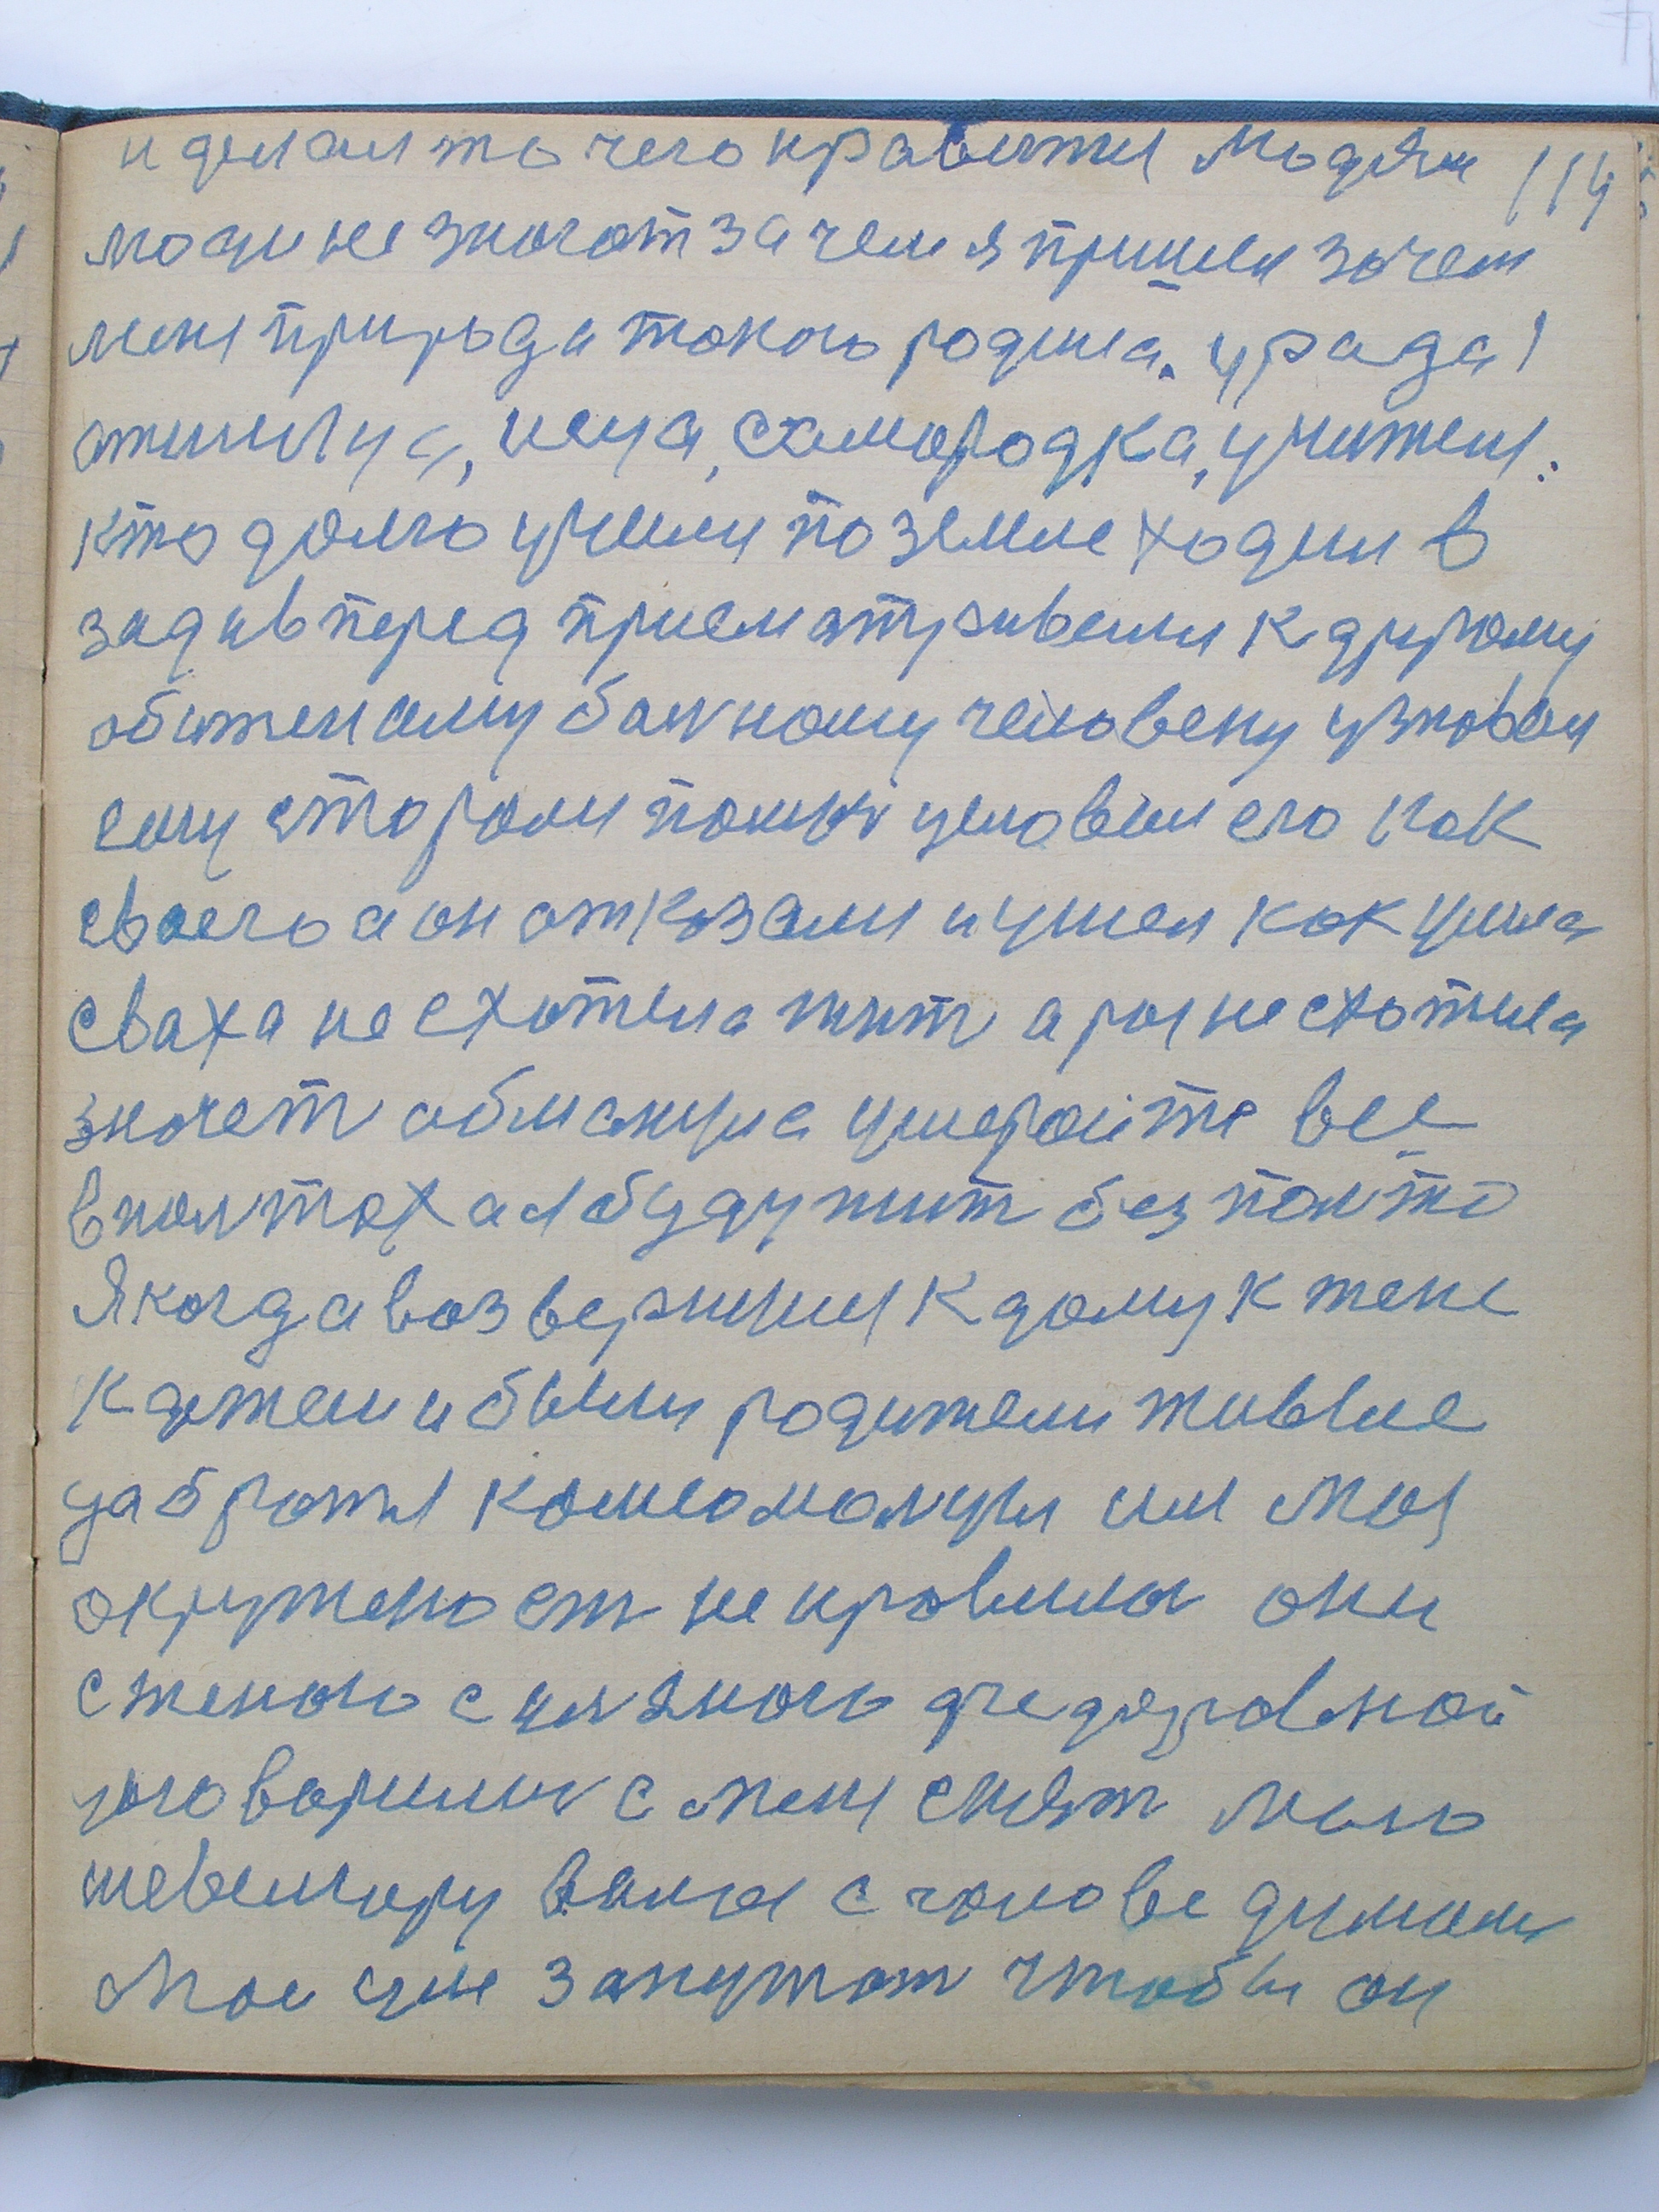 и делаит то чего нравитя людям 114
люди не знают зачем я пришел зачем
меня природа такого родила. урада!
кто долго учился по земле ходил в
зад и вперед присматривался к другому
обиженаму больному человеку узнавал
ему старался помоч условия его как
своего а он отказался и ушел как ушла
сваха не схотела жит а раз не схотела
значет обманула умерайте все
в полтах а я буду жит без полто
Я когда возвернулся к дому к жене
к детям и были родители живые
да братя комсомолцы им моя
окружоност не нравилас они
с женою с уляною федоровной
уговорилис с меня снят мою
шевелюру волоса с головы думали
мое уме запутат чтобы он